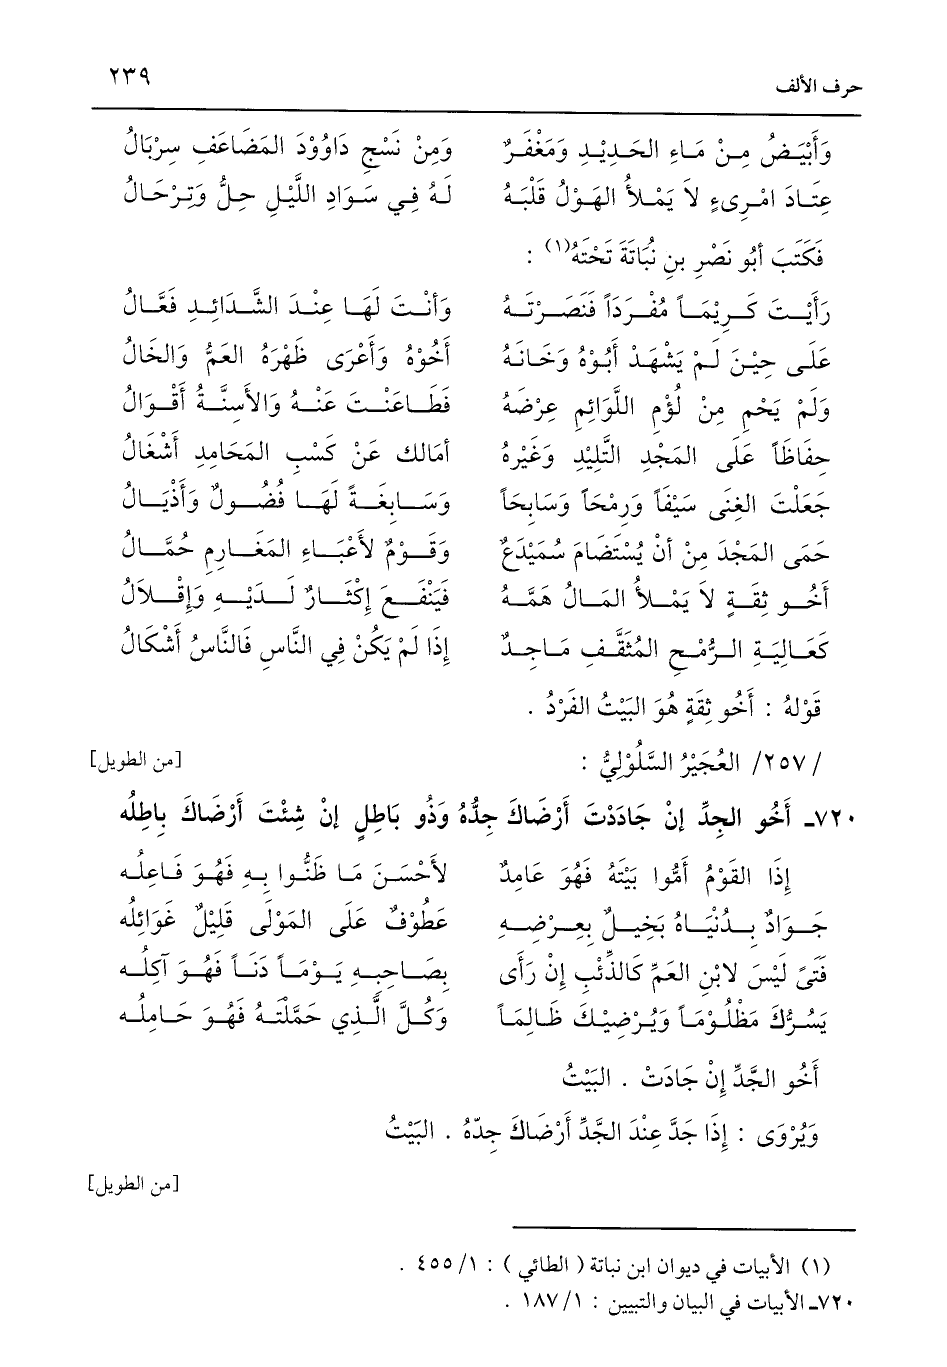 حرف الألف ٢٣٩
وَأَبْيَضُ مِنْ مَاءِ الحَدِيْدِ وَمَغْفَرٌ وَمِنْ نَسْجِ دَاوُوْدَ المَضَاعَفِ سِرْبَالُ
عِتَادَ امْرِىءٍ لاَ يَمْلأُ الهَوْلُ قَلْبَهُ لَهُ فِي سَوَادِ اللَّيْلِ حِلُّ وَتِرْحَالُ
فَكَتَبَ أبُو نَصْرِ بنِ نُبَاتَةَ تَحْتَهُ(١) :
رَأَيْتَ كَرِيْمَاً مُفْرَدَاً فَنَصَرْتَهُ وَأنْتَ لَهَا عِنْدَ الشَّدَائِدِ فَعَّالُ
عَلَى حِيْنَ لَمْ يَشْهَدْ أَبُوْهُ وَخَانَهُ أَخُوْهُ وَأَعْرَى ظَهْرَهُ العَمُّ وَالخَالُ
وَلَمْ يَحْمِ مِنْ لُؤْمِ اللَّوَائِمِ عِرْضَهُ فَطَاعَنْتَ عَنْهُ وَالأسِنَّةُ أَقْوَالُ
حِفَاظَاً عَلَى المَجْدِ التَّلِيْدِ وَغَيْرُهُ أمَالك عَنْ كَسْبِ المَحَامِدِ أَشْغَالُ
جَعَلْتَ الغِنَى سَيْفَاً وَرِمْحَاً وَسَابِحَاً وَسَابِغَةً لَهَا فُضُولٌ وَأَذْيَالُ
حَمَى المَجْدَ مِنْ أنْ يُسْتَضَامَ سُمَيْدَعٌ وَقَوْمٌ لأَعْبَاءِ المَغَارِمِ حُمَّالُ
أخُو ثِقَةٍ لاَ يَمْلأُ المَالُ هَمَّهُ فَيَنْفَعَ إِكْثَارٌ لَدَيْهِ وَإِقْلاَلُ
كَعَالِيَةِ الرُّمْحِ المُثَقَّفِ مَاجِدٌ إِذَا لَمْ يَكُنْ فِي النَّاسِ فَالنَّاسُ أَشْكَالُ
قَوْلهُ : أَخُو ثِقَةٍ هُوَ البَيْتُ الفَرْدُ .
/ ٢٥٧/ العُجَيْرُ السَّلُوْلِيُّ : [من الطويل]
٧٢٠ـ أَخُو الجِدِّ إنْ جَادَدْتَ أَرْضَاكَ جِدُّهُ وَذُو بَاطِلٍ إنْ شِئْتَ أَرْضَاكَ بِاطِلُه
إِذَا القَوْمُ أمُّوا بَيْتَهُ فَهُوَ عَامِدٌ لأحْسَنَ مَا ظَنُّوا بِهِ فَهُوَ فَاعِلُه
جَوَادٌ بِدُنْيَاهُ بَخِيلٌ بِعِرْضِهِ عَطُوْفٌ عَلَى المَوْلَى قَلِيْلٌ غَوَائِلُه
فَتَىً لَيْسَ لابْنِ العَمِّ كَالذِّئْبِ إنْ رَأى بِصَاحِبِهِ يَوْمَاً دَمَاً فَهُوَ آكِلُه
يَسُرُّكَ مَظْلُومَاً وَيُرْضِيْكَ ظَالِمَاً وَكُلَّ الَّذِي حَمَّلْتَهُ فَهُوَ حَامِلُه
أَخُو الجَّدِّ إنْ جَادَتْ . البَيْتُ
وَيُرْوَى : إِذَا جَدَّ عِنْدَ الجَّدِّ أَرْضَاكَ جِدّهُ . البَيْتُ
[من الطويل]
(١) الأبيات في ديوان ابن نباتة ( الطائي ) : ١/ ٤٥٥ .
٧٢٠ـ الأبيات في البيان والتبيين : ١/ ١٨٧ .